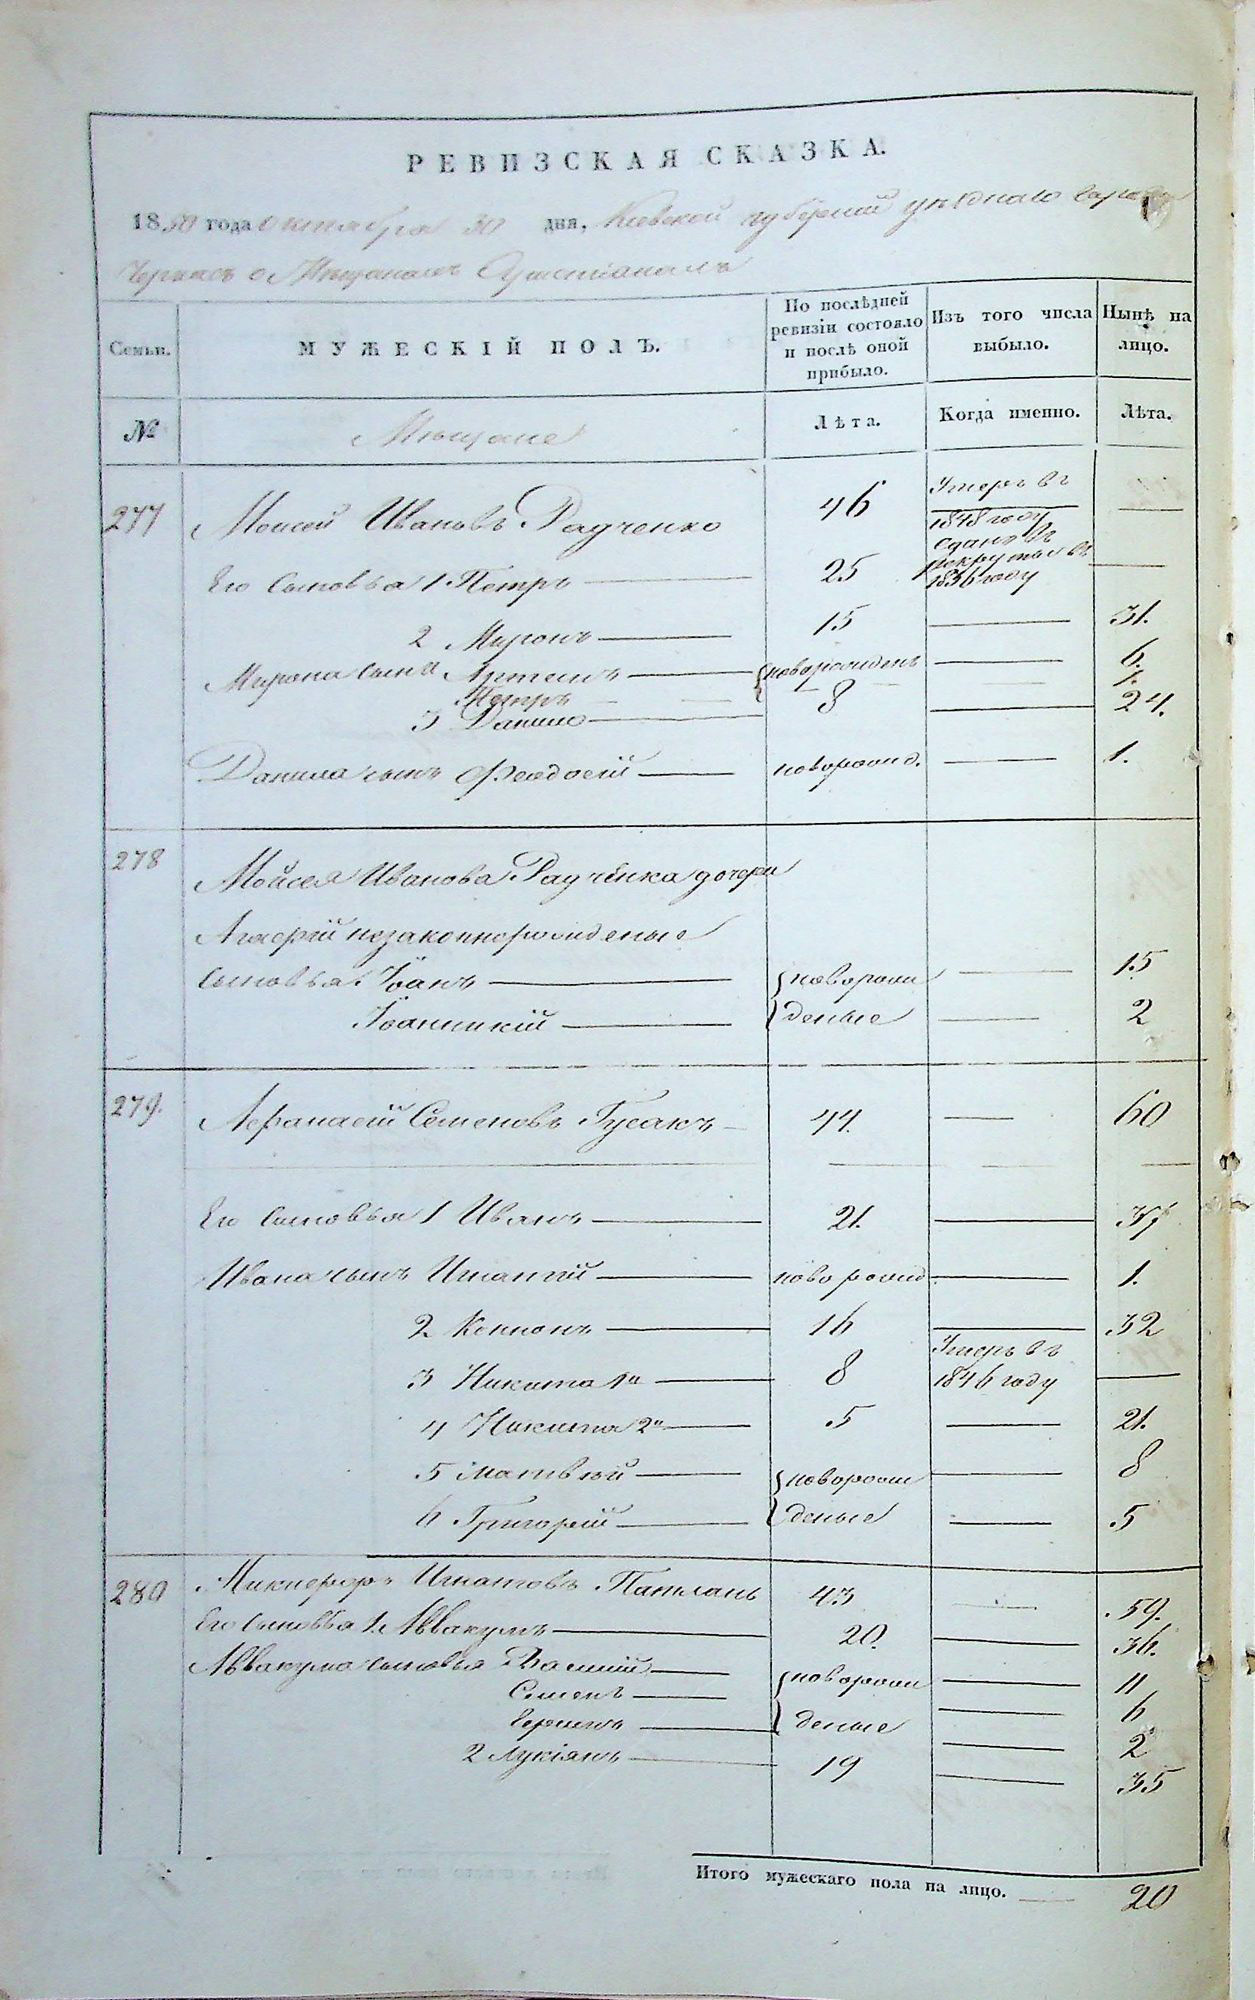 РЕВИЗСКАЯ СКАЗКА.
1850 года Октября 30 дня, Киевской губерніи уѣзднаго города
Черкасъ о Мѣщанахъ Христіанахъ
Семьи. МУЖЕСКІЙ ПОЛЪ. По послѣдней ревизіи состояло и послѣ оной прибыло. Изъ того числа выбыло. Нынѣ на лицо.
№ Мѣщане Лѣта. Когда именно. Лѣта.
277 Моисей Ивановъ Радченко 46 Умеръ въ 1848 году —
Его сыновья 1 Петръ — 25 Сданъ въ рекруты въ 1836 году —
2 Миронъ — 15 — 31.
Мирона сына Артемъ — { новорожденъ — 6.
Петръ — — — 1.
3 Данило — 8 — 24.
Данила сынъ Феодосій — новорожд. — 1.
278 Мойсея Иванова Радченка дочери
Агафіи незаконнорожденые
сыновья Іоанъ — { новорож — 15
Іоанникій — деные — 2
279. Афанасій Семеновъ Гусакъ — 44. — 60
Его сыновья 1 Иванъ — 21. — 37
Ивана сынъ Игнатій — новорожд — 1.
2 Кононъ — 16 — 32
3 Никита 1й — 8 Умеръ въ 1846 году —
4 Никита 2й — 5 — 21.
5 Матвѣй — { новорож — 8
6 Григорій — деные — 5
280 Никифоръ Игнатовъ 43 — 59.
Его сыновья 1 Аввакумъ — 20. — 36.
Аввакума сыновья Василій — { новорож — 11
Семенъ — — 6
— деные — 2
2 Лукіянъ — 19 — 35
Итого мужескаго пола на лицо. — 20